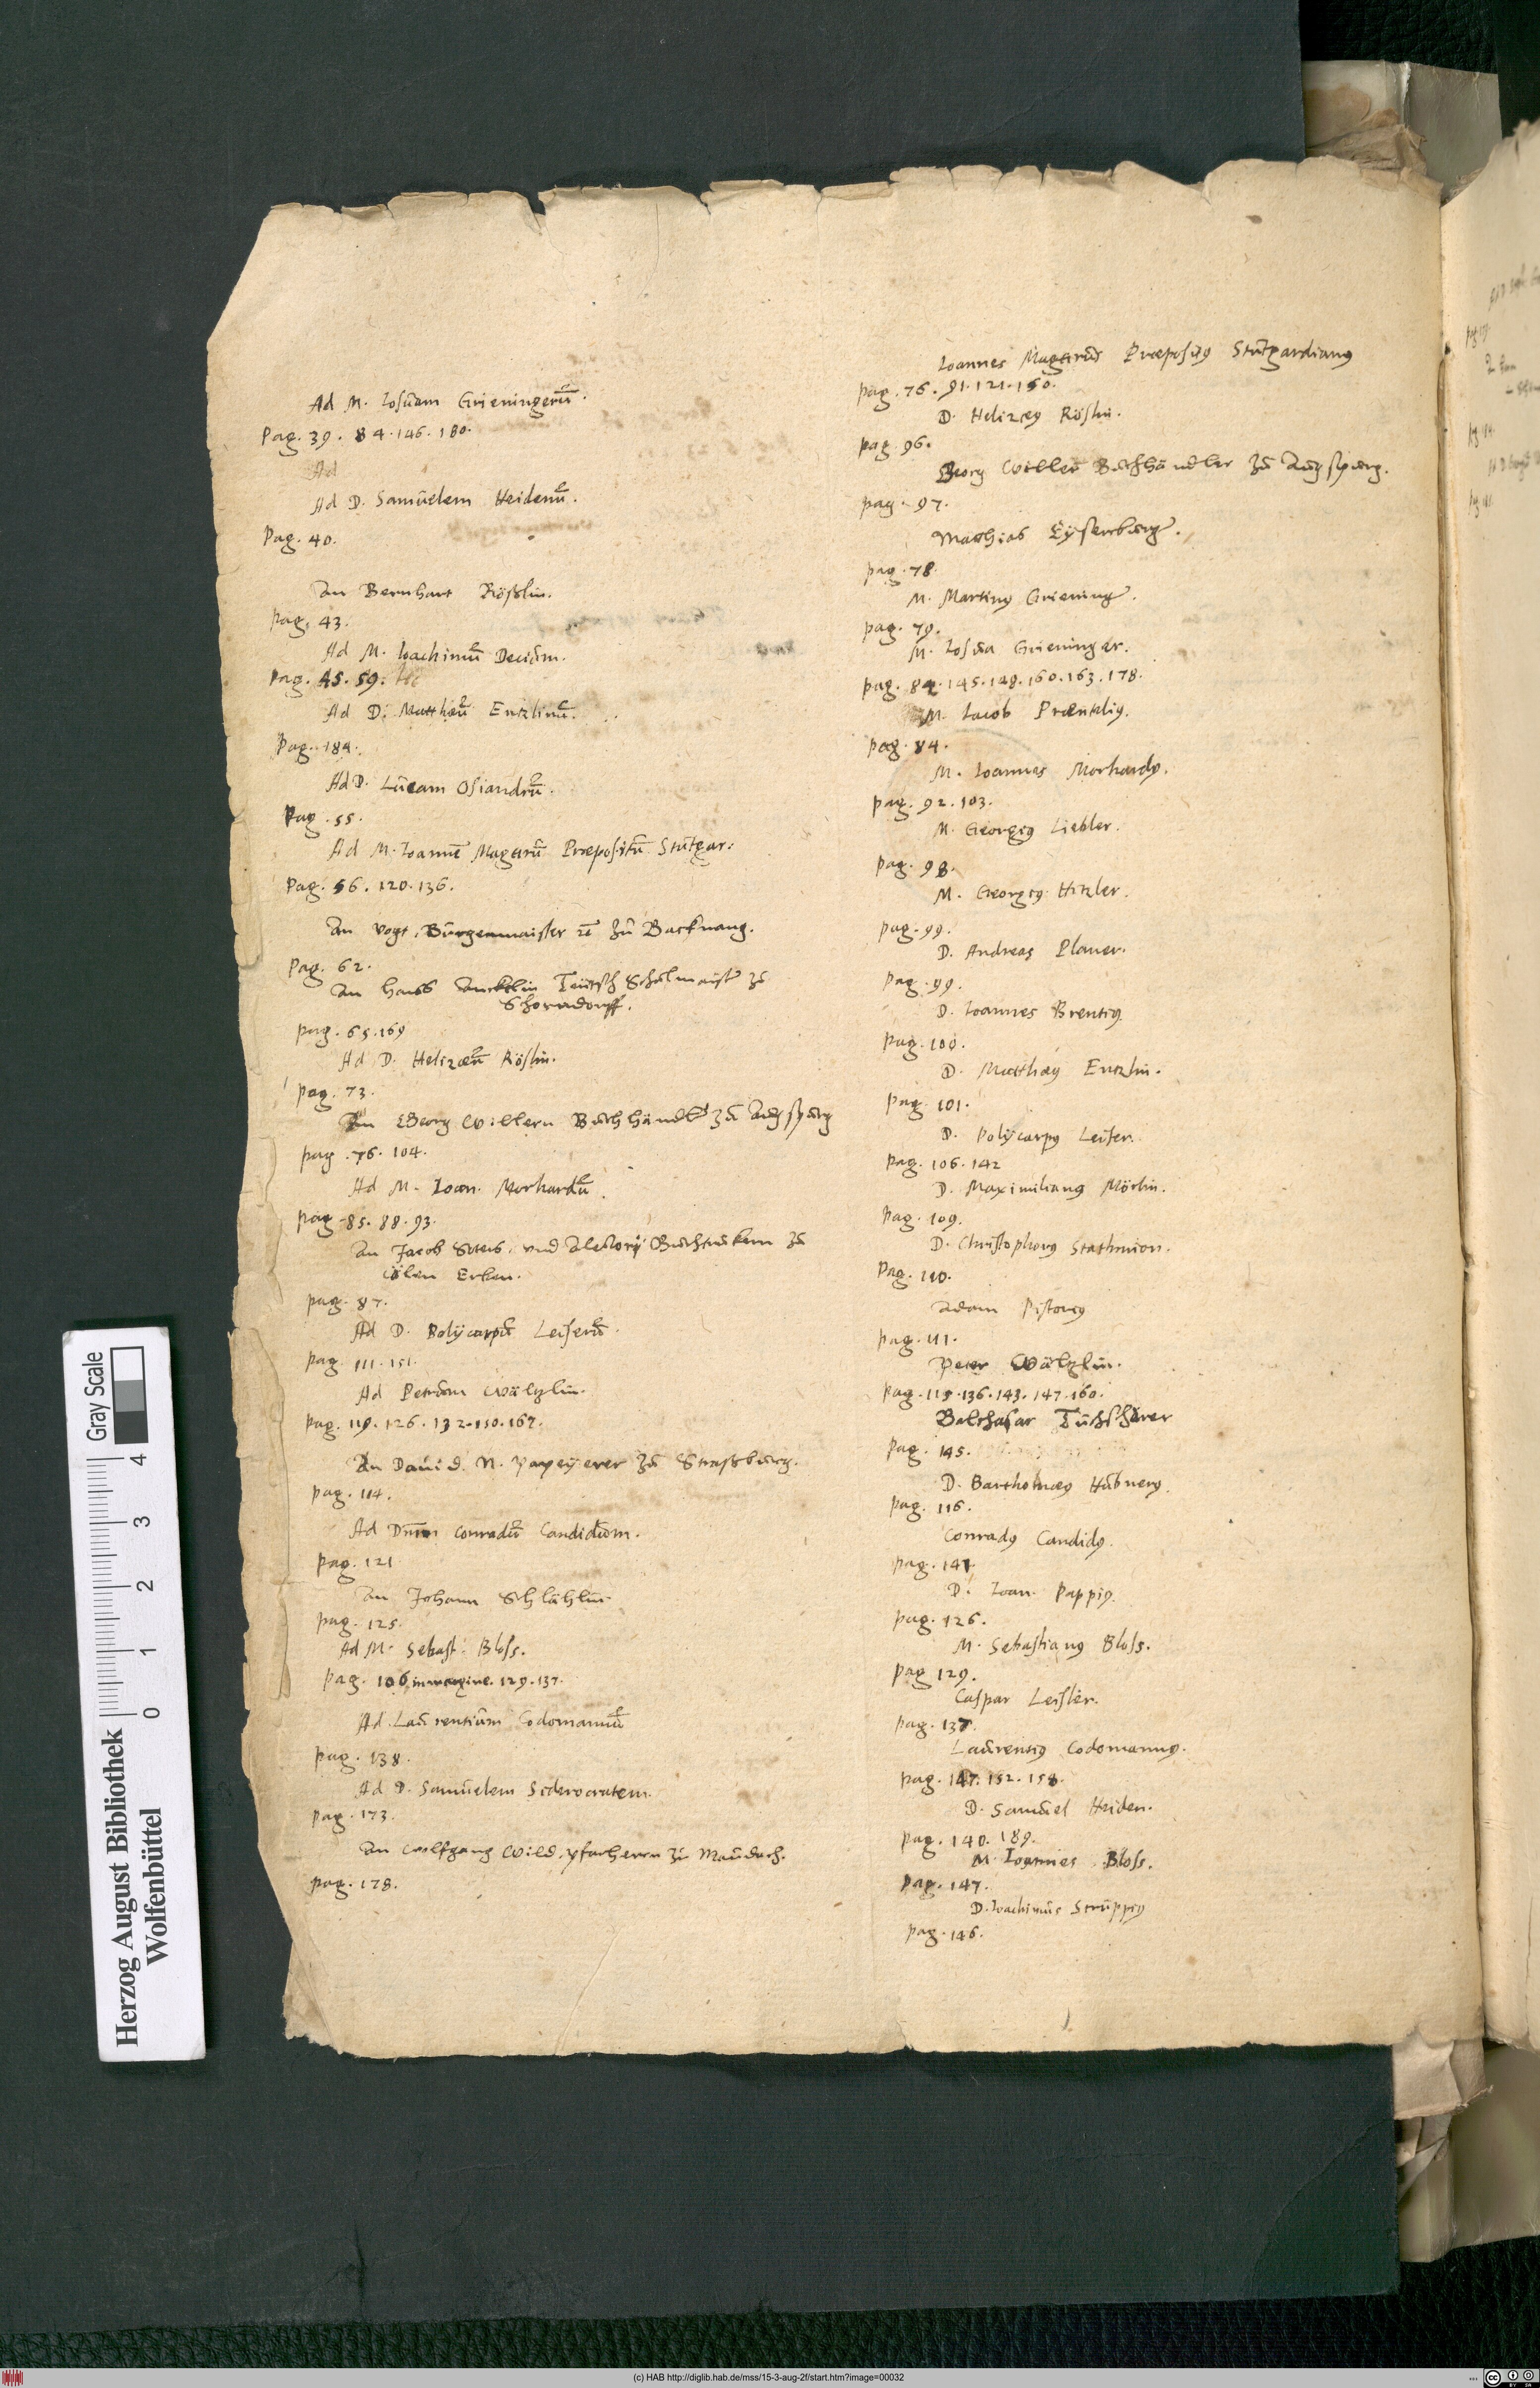 Ad M. Iosuam Grieningerũ.
Pag. 39. 84. 146. 180.
Ad
Ad D. Samuelem Heidenũ.
Pag. 40.
An Bernhart Rößlin.
pag. 43.
Ad M. Ioachimũ Decium.
Pag. 45. 59.
Ad D. Matthæũ Entzlinũ.
Pag. 184.
Ad D. Lucam Osiandrũ.
Pag. 55.
Ad M. Ioannē Magirũ Præpositũ Stutgar:
Pag. 56. 120. 136.
An Vogt, Burgenmaister zu Backnang.
Pag. 62.
An Hans Teutsch Schulmaister zu
Schorndorff.
pag. 65. 169
Ad D. Helizæũ Röslin.
pag. 73.
An Georg Willern Buchhändler zu Augspurg
pag. 76. 104.
Ad M. Ioan. Morhardũ.
pag. 85. 88. 93.
An Jacob und Alectorÿ Buchtruckern zu
Cölen Erben.
pag. 87.
Ad D. Polÿcarpũ Leiserũ.
pag. 111. 151.
Ad Petrum Wältzlin.
pag. 119. 126. 132. 150. 167.
An Dauid. N. Papeÿerer zu Straßburg.
pag. 114.
Ad Dñm Conradũ Candidum.
pag. 121
An Johann Schlählin.
pag. 125.
Ad M. Sebast. Bloss.
pag. 106 in margine. 129. 137.
Ad Laurentium Codomannũ
pag. 138.
Ad D. Samuelem Siderocratem.
pag. 173.
An Wolfgang Wild, pfarherrn zu Maudach.
pag. 178.
Ioannes Magirus Præpositꝰ Stutgardianꝰ
pag. 76. 91. 121. 150.
D. Helizæꝰ Röslin.
pag. 96.
Georg Willer Buchhändler zu Augspurg.
pag. 97.
Matthias Eÿsenburger.
pag. 78.
M. Martinꝰ Grieninger.
pag. 79.
M. Iosua Grieninger.
pag. 84. 145. 148. 160. 163. 178.
M. Iacob Præntzliꝰ.
pag. 84.
M. Ioannes Morhardꝰ.
pag. 92. 103.
M. Georgiꝰ Liebler.
pag. 98.
M. Georgiꝰ Hitzler.
pag. 99.
D. Andreas Planer.
pag. 99.
D. Ioannes Brentiꝰ
pag. 100.
D. Matthæꝰ Entzlin.
pag. 101.
D. Polÿcarpꝰ Leiser.
pag. 106. 142
D. Maximilianꝰ Mörlin.
pag. 109.
D. Christophorꝰ Stathmion.
Pag. 110.
Adam Pistoriꝰ
pag. 111.
Peter Wältzlin.
pag. 119. 136. 143. 147. 160.
Balthasar Tuchscherer
pag. 145.
D. Bartholmæꝰ Hubnerꝰ.
pag. 116.
Conradꝰ Candidꝰ.
pag. 141.
D. Ioan. Pappiꝰ.
pag. 126.
M. Sebastianꝰ Bloss.
pag 129.
Caspar Leisler.
pag. 137.
Laurentiꝰ Codomannꝰ.
pag. 147. 152. 158.
D. Samuel Heiden.
pag. 140. 189.
M. Ioannes Bloss.
Pag. 147.
D. Ioachimus Struppiꝰ
pag. 146.
Gray Scale
4 3 2 1 0
Herzog August Bibliothek
Wolfenbüttel
(c) HAB http://diglib.hab.de/mss/15-3-aug-2f/start.htm?image=00032